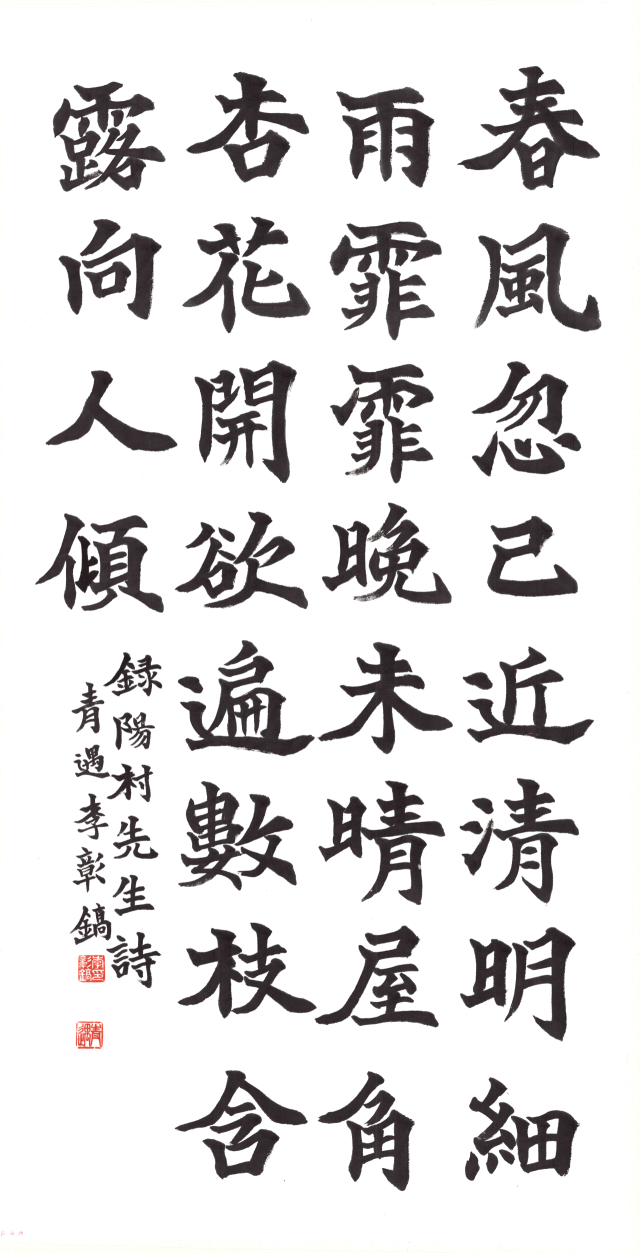 春風忽已近清明細
雨霏霏晩未晴屋角
杏花開欲遍數枝含
露向人傾
録陽村先生詩
青遇李彰鎬